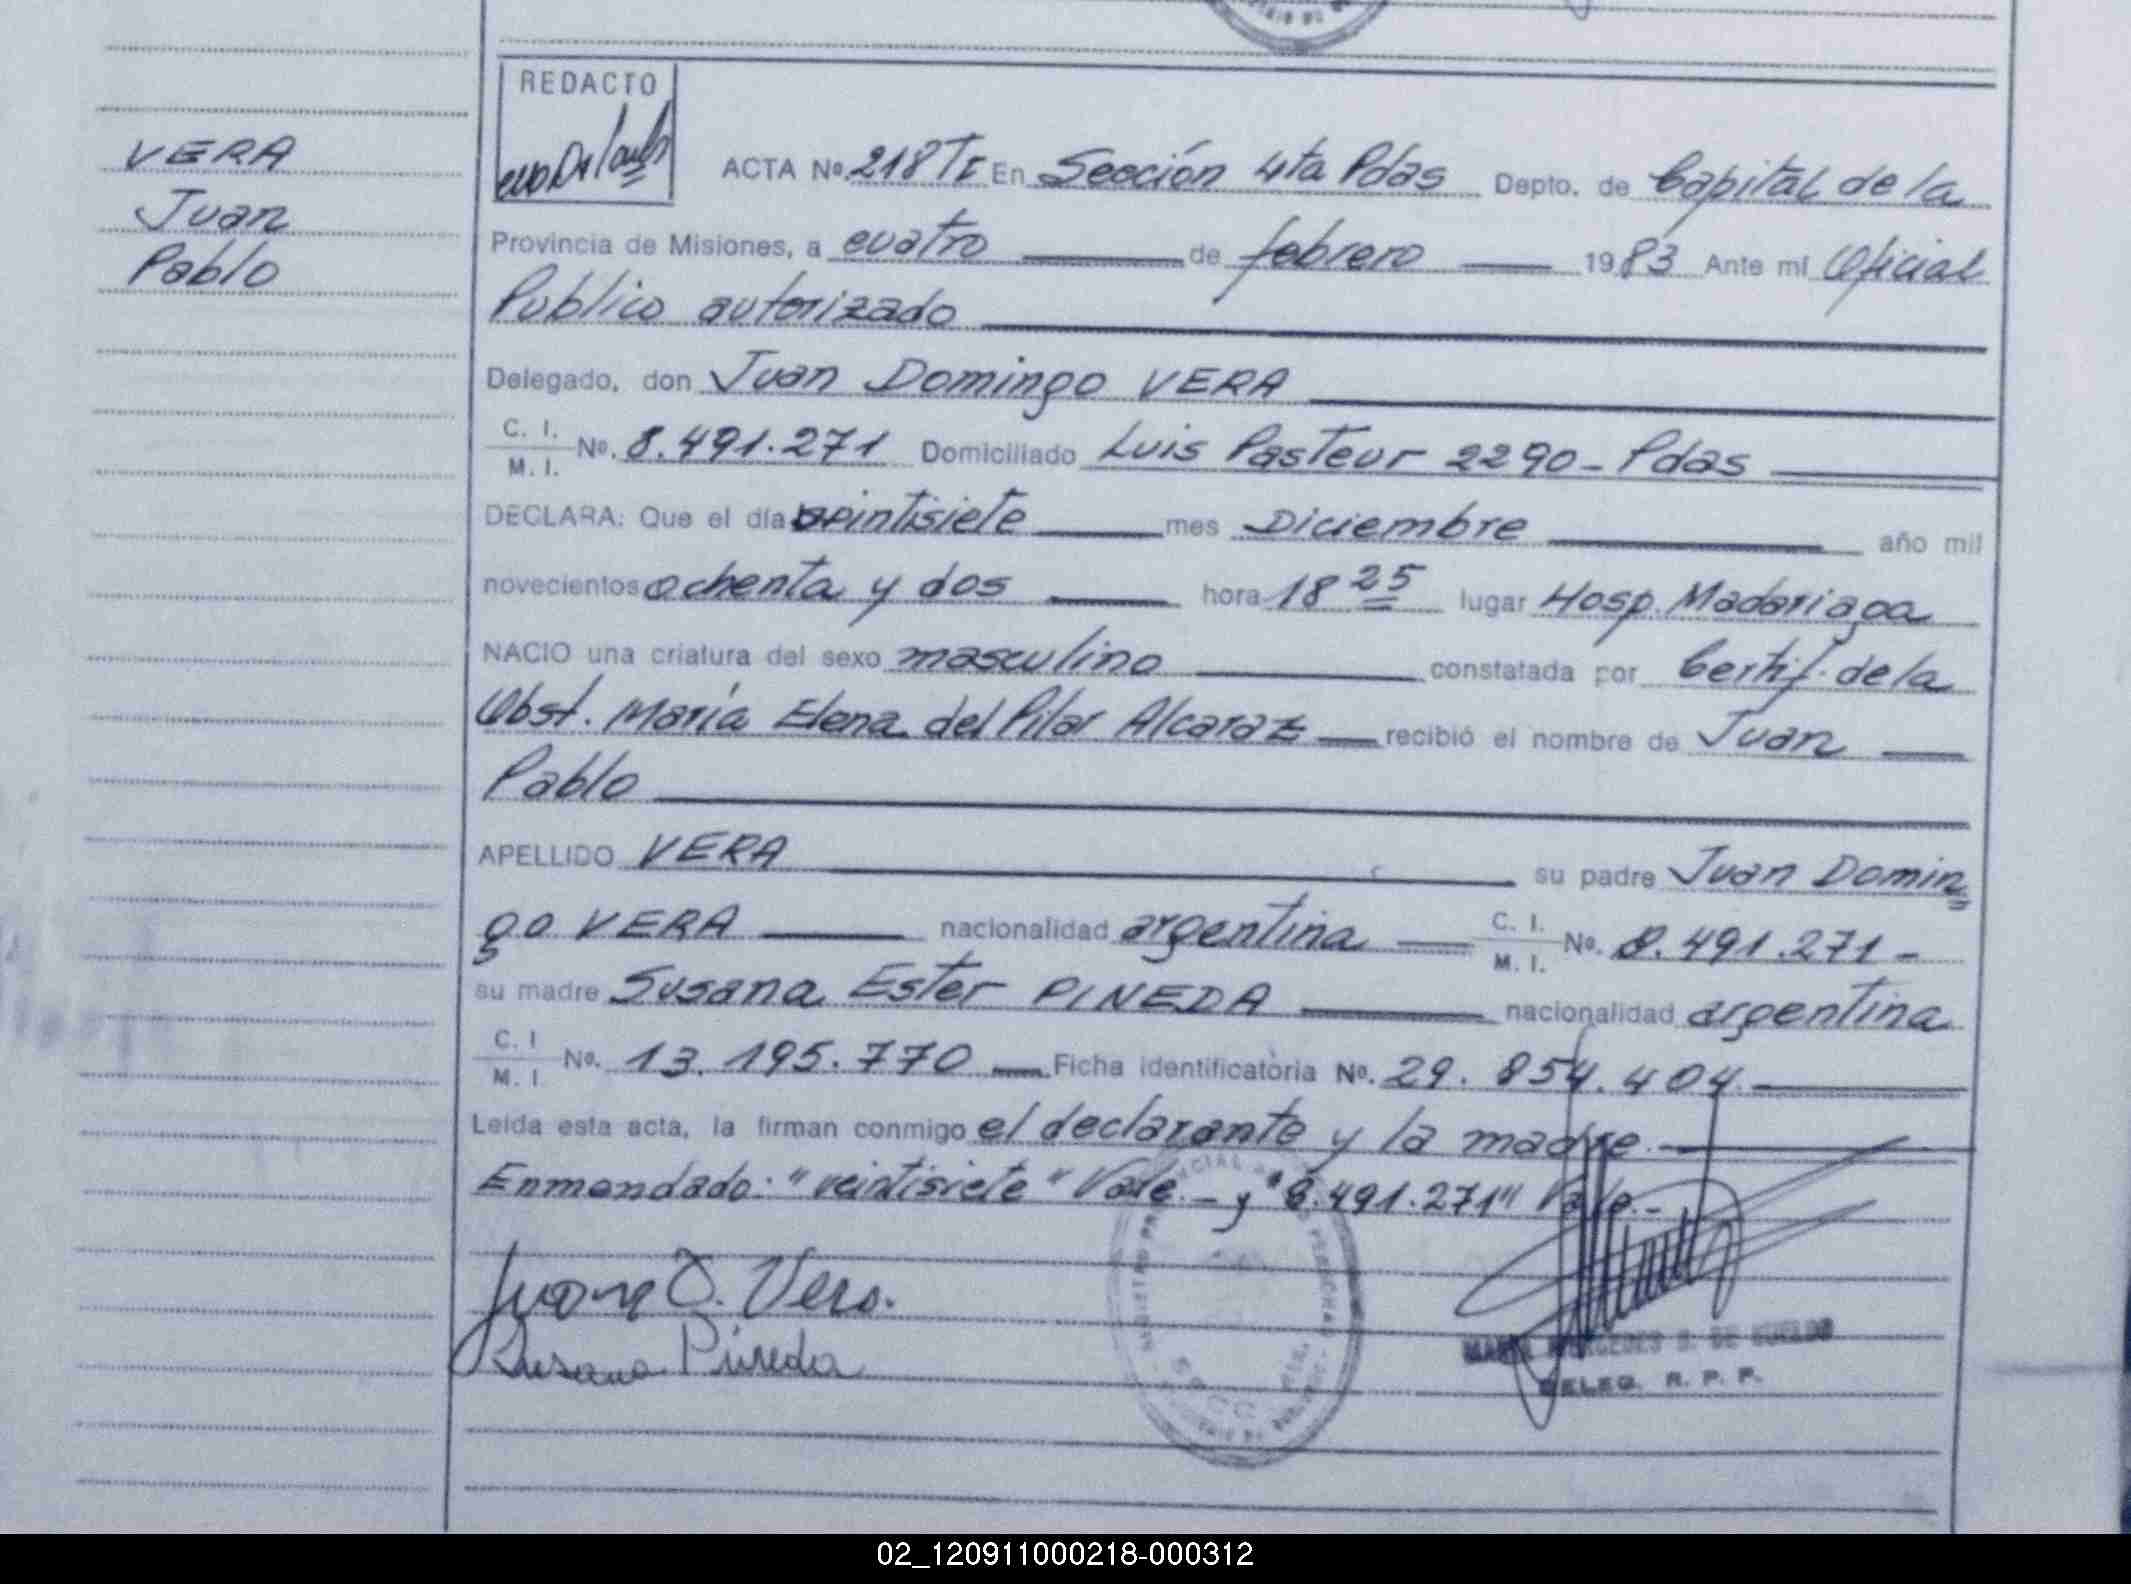 VERA
Juan
Pablo
REDACTO
ACTA Nº 218 TI En Sección 4ta Pdas Depto. de Capital de la
Provincia de Misiones, a cuatro de febrero 1983 Ante mí Oficial
Publico autorizado
Delegado, don Juan Domingo VERA
C. I. M. I. Nº. 8.491.271 Domiciliado Luis Pasteur 2290 - Pdas
DECLARA: Que el día veintisiete mes Diciembre año mil
novecientos ochenta y dos hora 18 25 lugar Hosp. Madariaga
NACIO una criatura del sexo masculino constatada por Certif. de la
Obst. María Elena del Pilar Alcaraz recibió el nombre de Juan
Pablo
APELLIDO VERA su padre Juan Domin
go VERA nacionalidad argentina C. I. M. I. Nº. 8.491.271 -
su madre Susana Ester PINEDA nacionalidad argentina
C. I M. I. Nº. 13.195.770 Ficha identificatoria Nº. 29.854.404.
Leída esta acta, la firman conmigo el declarante y la madre.
Enmendado: "veintisiete" Vale. - y "8.491.271" Vale. -
Juan D. Vera.
Susana Pineda
MARIA MERCEDES DE
DELEG. R. P. P.
02_120911000218-000312